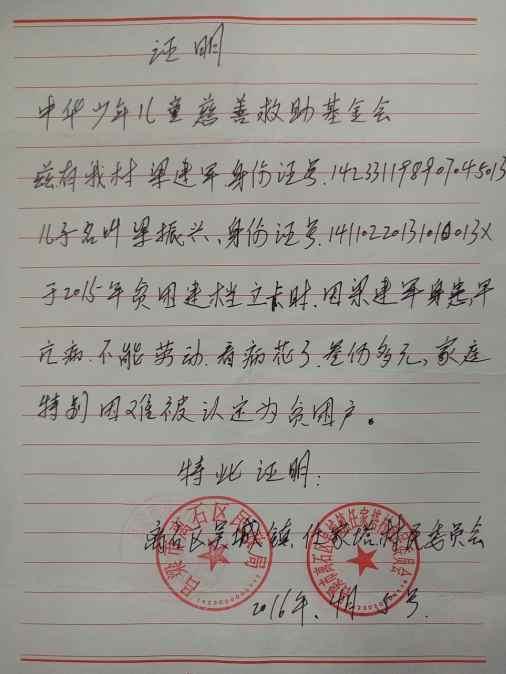 证明
中华少年儿童慈善救助基金会
兹有我村梁建军身份证号.142331198907045013
儿子名叫梁振兴、身份证号.14110220131010013X
于2015年贫困建档立卡时.因梁建军身患.早
亡病.不能劳动.看病花了.叁伤多元、家庭
特别困难被认定为贫困户。
特此证明:
离石区吴城镇.任家塔.村民委员会
2016年.4月5号.
吕梁市离石区民政局